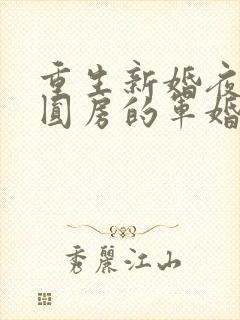 重生新婚夜
圓房的軍婚
秀麗江山